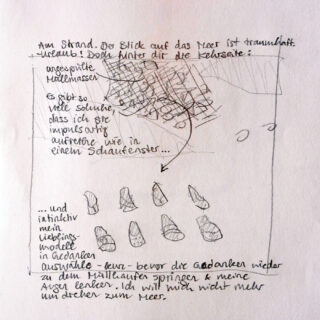 Am Strand. Der Blick auf das Meer ist traumhaft
- Urlaub! Doch hinter dir die Kehrseite:
angespülte
Müllmassen
Es gibt so
viele Schuhe,
dass ich sie
impulsartig
aufreihe wie in
einem Schaufenster...
... und
intuitiv
mein
Lieblings-
modell
in Gedanken
auswähle - kurz - bevor die Gedanken wieder
zu dem Müllhaufen springen & meine
Augen lenken. Ich will mich nicht mehr
umdrehen zum Meer.